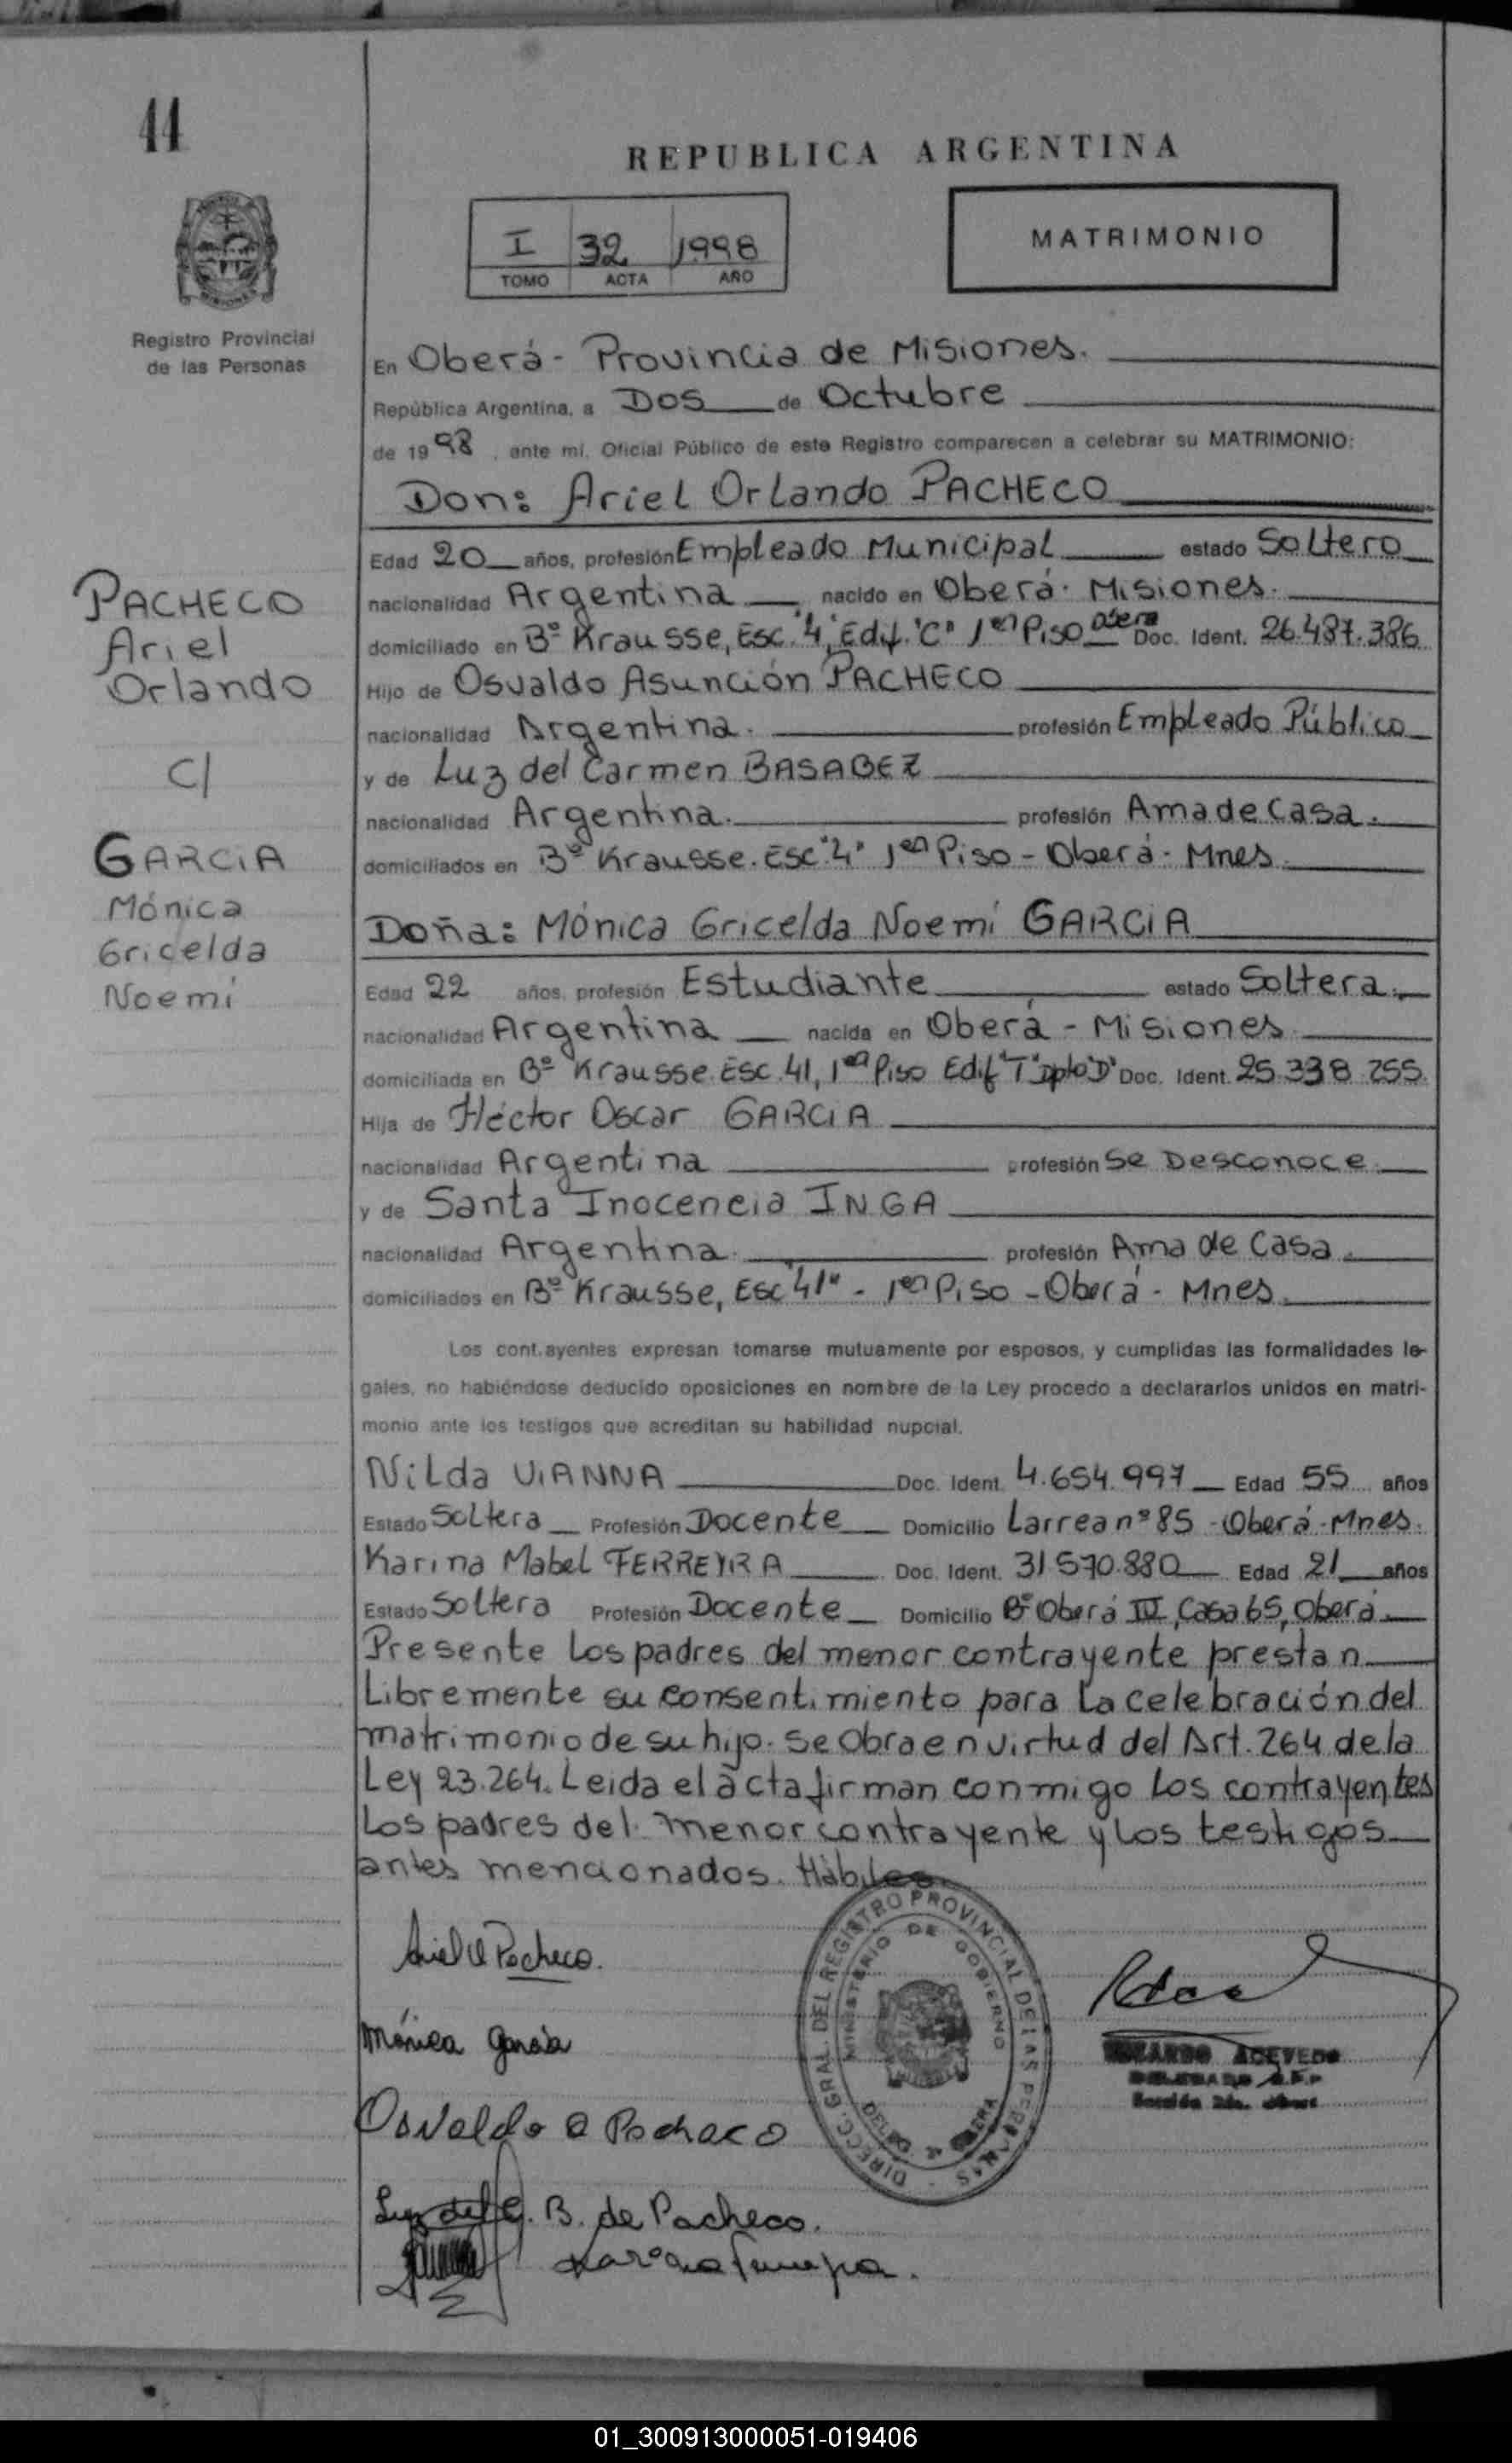 11
REPUBLICA ARGENTINA
I 32 1998
TOMO ACTA AÑO
MATRIMONIO
Registro Provincial
de las Personas
En Oberá - Provincia de Misiones.
República Argentina, a Dos de Octubre
de 1998, ante mí, Oficial Público de este Registro comparecen a celebrar su MATRIMONIO:
Don: Ariel Orlando PACHECO
Edad 20 años, profesión Empleado Municipal estado Soltero
PACHECO
Ariel
Orlando
C/
GARCIA
Mónica
Gricelda
Noemí
nacionalidad Argentina nacido en Oberá. Misiones.
domiciliado en Bº Krausse, Esc. "4", Edif. "C" 1er Piso Oberá Doc. Ident. 26.487.386
Hijo de Osvaldo Asunción PACHECO
nacionalidad Argentina. profesión Empleado Público
y de Luz del Carmen BASABEZ
nacionalidad Argentina. profesión Ama de Casa.
domiciliados en Bº Krausse. Esc "4" 1er Piso - Oberá - Mnes.
Doña: Mónica Gricelda Noemí GARCIA
Edad 22 años, profesión Estudiante estado Soltera.
nacionalidad Argentina nacida en Oberá - Misiones
domiciliada en Bº Krausse. Esc. 41, 1er Piso Edif "T" Dpto "D" Doc. Ident. 25.338.255.
Hija de Héctor Oscar GARCIA
nacionalidad Argentina profesión Se Desconoce.
y de Santa Inocencia INGA
nacionalidad Argentina. profesión Ama de Casa.
domiciliados en Bº Krausse, Esc "41" - 1er Piso - Oberá - Mnes.
Los cont.ayentes expresan tomarse mutuamente por esposos, y cumplidas las formalidades le-
gales, no habiéndose deducido oposiciones en nombre de la Ley procedo a declararlos unidos en matri-
monio ante los testigos que acreditan su habilidad nupcial.
Nilda VIANNA Doc. Ident. 4.654.997 Edad 55 años
Estado Soltera Profesión Docente Domicilio Larrea nº 85 - Oberá - Mnes.
Karina Mabel FERREYRA Doc. Ident. 31.570.880 Edad 21 años
Estado Soltera Profesión Docente Domicilio Bº Oberá IV, Casa 65, Oberá.
Presente los padres del menor contrayente prestan
Libremente su consentimiento para la celebración del
matrimonio de su hijo. Se obra en virtud del Art. 264 de la
Ley 23.264. Leida el àcta firman conmigo los contrayentes
Los padres del menor contrayente y los testigos
antes mencionados. Hàbiles
Ariel O Pacheco.
Mónica García
Osvaldo A Pacheco
Luz del C. B. de Pacheco.
Karina Ferreyra.
DIRECC. GRAL. DEL REGISTRO PROVINCIAL DE LAS PERSONAS
MINISTERIO DE GOBIERNO
OBERA
ACEVEDO
01_300913000051-019406